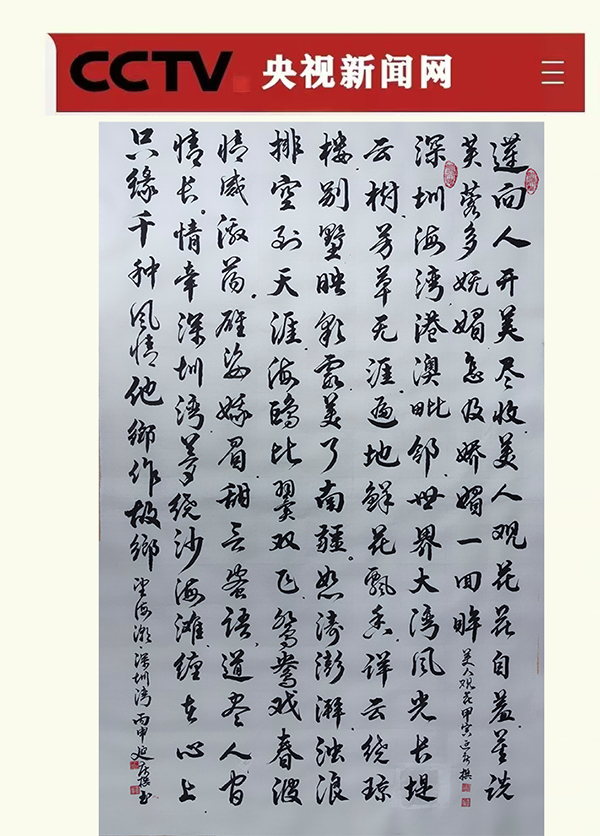 CCTV 央视新闻网
莲向人开美尽收美人观花花自羞说
芙蓉多妩媚怎及娇媚一回眸 美人观花甲寅延撰
深圳海湾港澳毗邻世界大湾风光长堤
云树芳草无涯遍地鲜花飘香祥云绕琼
楼别墅映彩霞美了南疆。怒涛澎湃浊浪
排空到天涯海鸥比翼双飞鸳鸯戏春波
情感激荡。雄姿娥眉甜言蜜语道尽人间
情长。情牵深圳湾梦绕沙海滩缠在心上
只緣千种风情他鄉作故鄉 望海潮·深圳湾 丙申延撰书